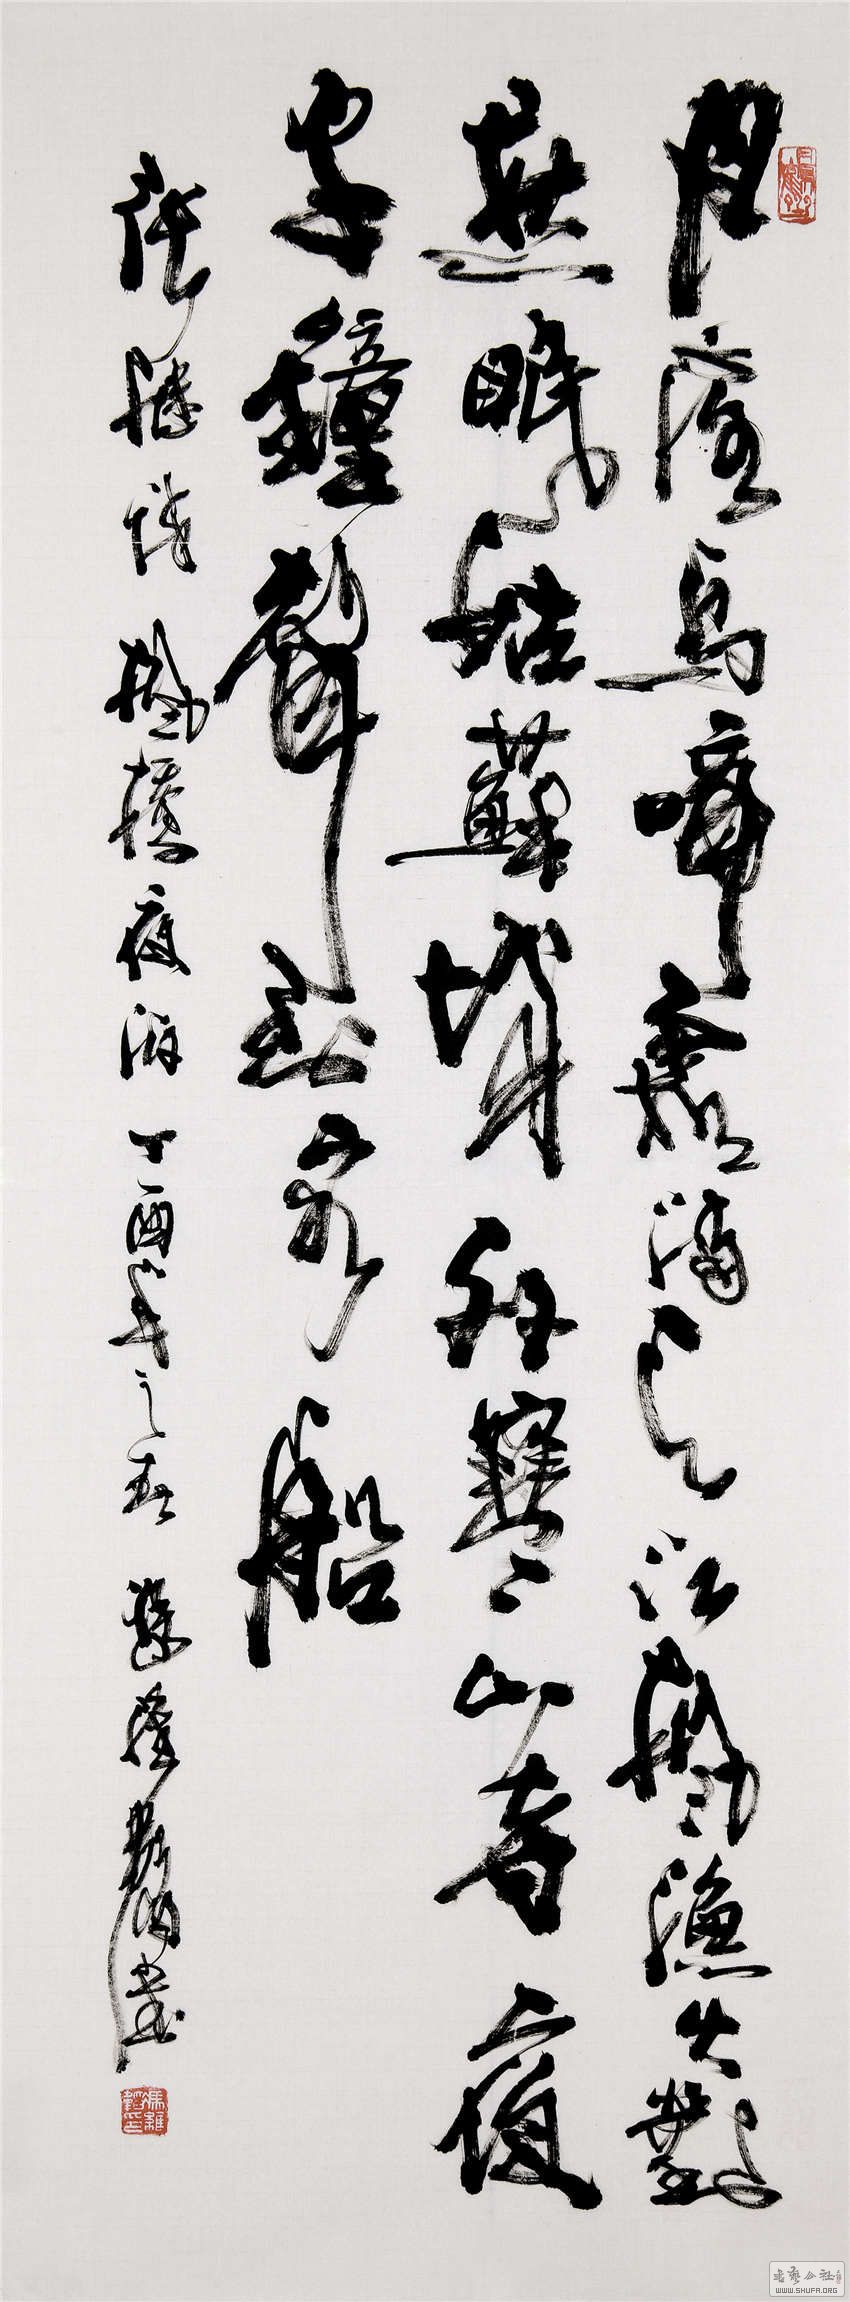 月落烏啼霜滿天江楓漁火對
愁眠姑蘇城外寒山寺夜
半鐘聲到客船
張繼詩楓橋夜泊丁酉年之春書
书艺公社
WWW.SHUFA.ORG